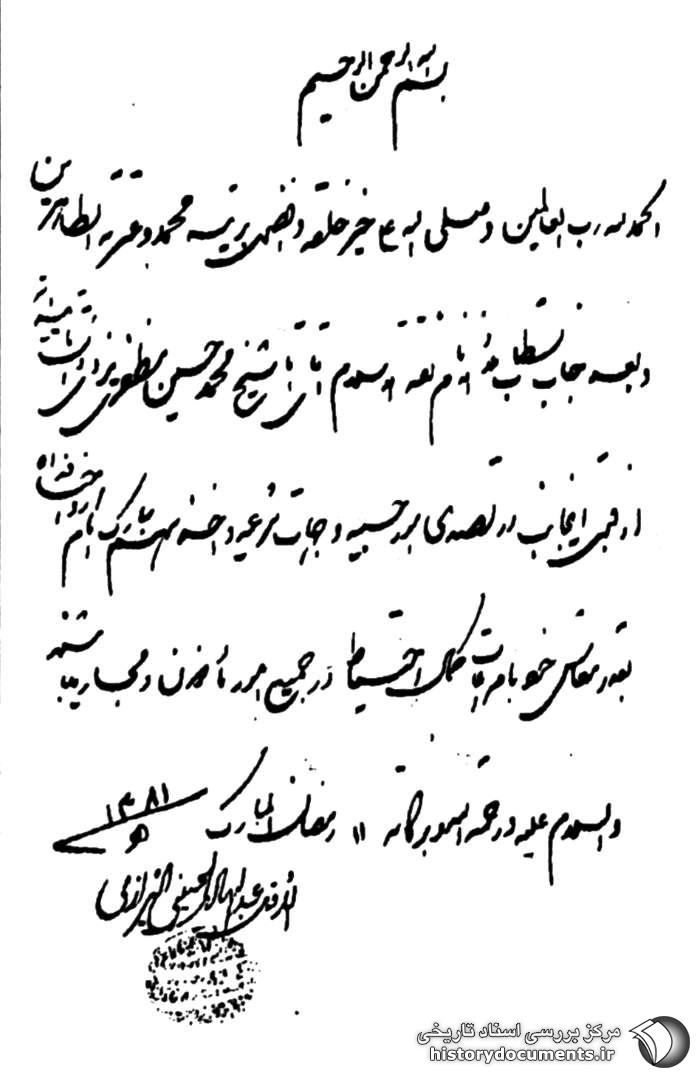 بسم الله الرحمن الرحیم
الحمد لله رب العالمین و صلی الله علی خیر خلقه و افضل بریته محمد و عترته الطاهرین
و بعد جناب مستطاب ملاذ الانام ثقة الاسلام آقای آقا شیخ محمد حسین یزدی
از قبل اینجانب در تصدی امور حسبیه و جهات شرعیه و اخذ سهم مبارک امام ارواحنا فداه
بقدر معاش خود با مراعات کمال احتیاط در جمیع امور مأذون و مجاز میباشند
والسلام علیه و رحمة الله و برکاته ۱۱ رمضان المبارک ۱۳۸۱
الاحقر عبدالهادی الحسینی الشیرازی
مرکز بررسی اسناد تاریخی
historydocuments.ir